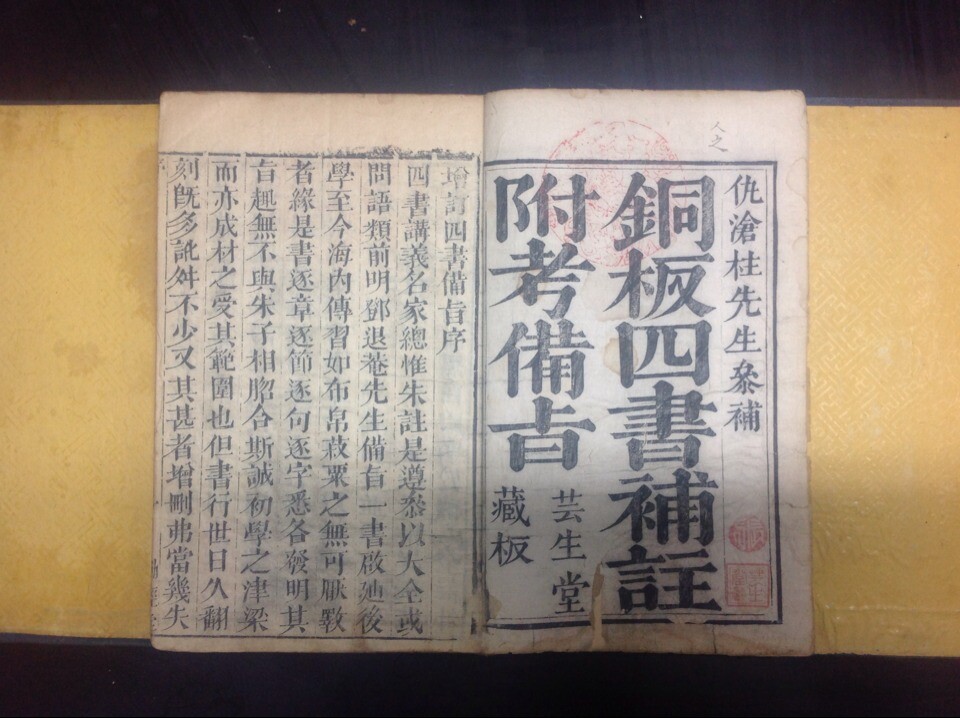 仇滄柱先生叅補
銅板四書補註
附考備旨
芸生堂
藏板
增訂四書備旨序
四書講義名家總惟朱註是遵叅以大全或
問語類前明鄧退菴先生備旨一書啟廸後
學至今海內傳習如布帛菽粟之無可厭斁
者緣是書逐章逐節逐句逐字悉各發明其
旨趣無不與朱子相脗合斯誠初學之津梁
而亦成材之受其範圍也但書行世日久翻
刻旣多訛舛不少又其甚者增刪弗當幾失